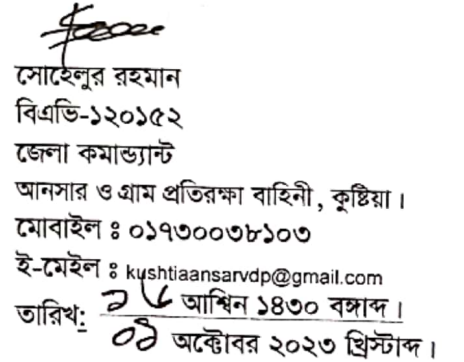 সোহেলুর রহমান
বিএভি-১২০১৫২
জেলা কমান্ড্যান্ট
আনসার ও গ্রাম প্রতিরক্ষা বাহিনী, কুষ্টিয়া।
মোবাইল ঃ ০১৭৩০০৩৮১০৩
ই-মেইল ঃ kushtiaansarvdp@gmail.com
তারিখ: ১৬ আশ্বিন ১৪৩০ বঙ্গাব্দ।
০১ অক্টোবর ২০২৩ খ্রিস্টাব্দ।